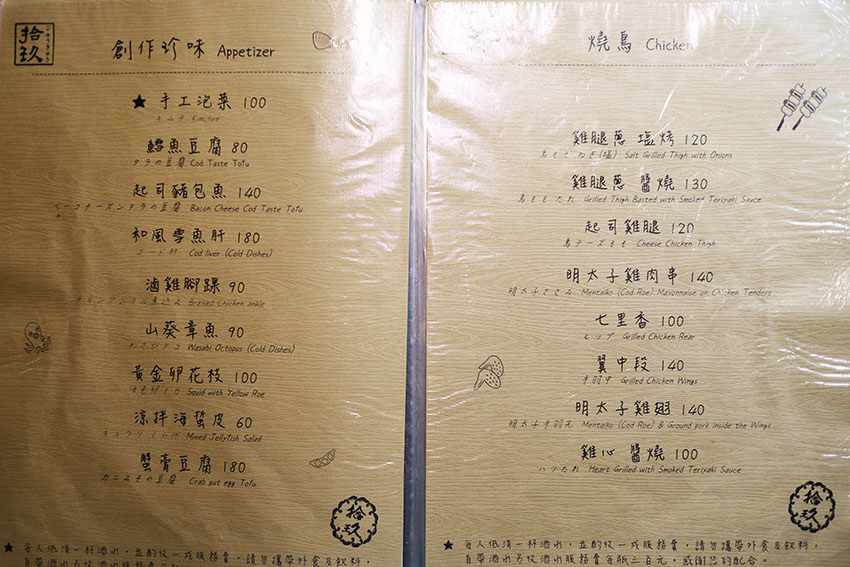 拾玖
創作珍味 Appetizer
★ 手工泡菜 100
キムチ Kimchee
鱈魚豆腐 80
タラの豆腐 Cod Taste Tofu
起司豬包魚 140
ベーコンチーズンタラの豆腐 Bacon Cheese Cod Taste Tofu
和風雪魚肝 180
コード肝 Cod liver (Cold Dishes)
滷雞腳踝 90
Braised Chicken ankle
山葵章魚 90
わさびタコ Wasabi Octopus (Cold Dishes)
黃金卵花枝 100
Squid with Yellow Roe
涼拌海蜇皮 60
Mixed Jellyfish Salad
蟹膏豆腐 180
カニみその豆腐 Crab gut egg Tofu
拾玖
★ 每人低消一杯酒水，並酌收一成服務費，請勿攜帶外食及飲料，
自帶酒水另收酒水服務費每瓶三百元
燒鳥 Chicken
雞腿蔥 塩烤 120
鳥ももねぎ(塩) Salt Grilled Thigh with Onions
雞腿蔥 醬燒 130
鳥もも たれ Grilled Thigh Basted with Smoked Teriyaki Sauce
起司雞腿 120
鳥チーズもも Cheese Chicken Thigh
明太子雞肉串 140
明太子ささみ Mentaiko (Cod Roe) Mayonnaise on Chicken Tenders
七里香 100
ヒップ Grilled Chicken Rear
翼中段 140
手羽中 Grilled Chicken Wings
明太子雞翅 140
明太子手羽元 Mentaiko (Cod Roe) & Ground pork inside the Wings
雞心 醬燒 100
ハツたれ Heart Grilled with Smoked Teriyaki Sauce
拾玖
★ 每人低消一杯酒水，並酌收一成服務費，請勿攜帶外食及飲料，
自帶酒水另收酒水服務費每瓶三百元。感謝您的配合。